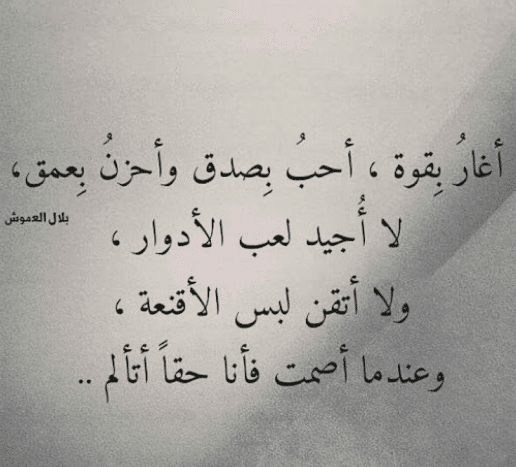 أغارُ بِقوة ، أحبُ بِصدق وأحزنُ بِعمق،
بلال العموش
لا أُجيد لعب الأدوار ،
ولا أتقن لبس الأقنعة ،
وعندما أصمت فأنا حقاً أتألم ..